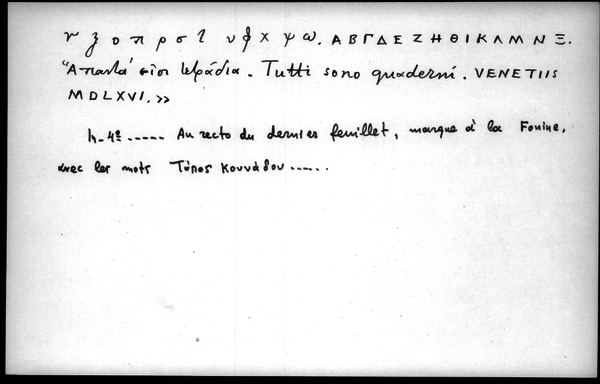 ν ξ ο π ρ σ τ υ φ χ ψ ω. Α Β Γ Δ Ε Ζ Η Θ Ι Κ Λ Μ Ν Ξ.
"Απαντά εἰσι τετράδια. Tutti sono quaderni. VENETIIS
MDLXVI. »
In-4º ..... Au recto du dernier feuillet, marque à la Fouine,
avec les mots Τύπος Κουνάδου .....